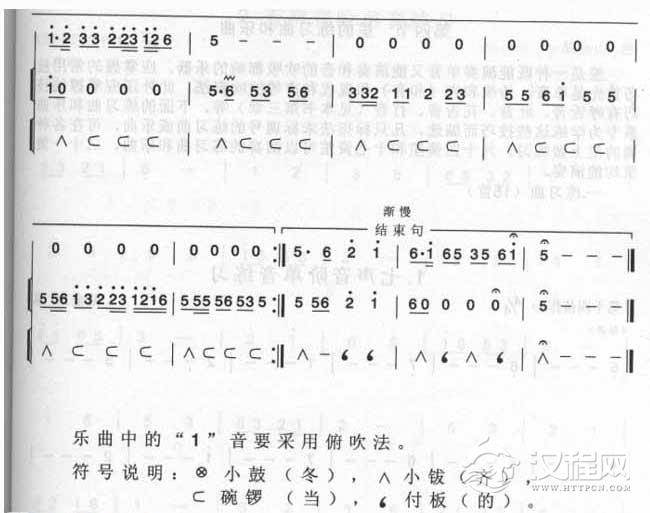 1·2 3 3 2 2 3 1 2 6 | 5 - - - | 0 0 0 0 | 0 0 0 0 | 0 0 0 0
1 0 0 0 0 | 5·6 5 3 5 6 | 3 3 2 1 1 2 2 3 | 5 5 6 1 5 5
∧ ⊂ ⊂ ⊂ | ∧ ⊂ ⊂ ⊂ | ∧ ⊂ ⊂ ⊂ | ∧ ⊂ ⊂ ⊂ | ∧ ⊂ ⊂ ⊂
渐慢
结束句
0 0 0 0 | 0 0 0 0 :‖ 5·6 2 1 | 6·1 6 5 3 5 6 1 | 5 - - - ‖
5 5 6 1 3 2 2 3 1 2 1 6 | 5 5 5 5 6 5 3 5 :‖ 5 5 6 2 1 | 6 0 0 0 0 | 5 - - - ‖
∧ ⊂ ⊂ ⊂ | ∧ ⊂ ⊂ ⊂ :‖ ∧ - ❛ ❛ | ∧ ❛ ∧ ❛ | ∧ - - - ‖
乐曲中的“1”音要采用俯吹法。
符号说明：⊗ 小鼓（冬），∧ 小钹（齐），
⊂ 碗锣（当），❛ 付板（的）。
汉程网
WWW.HTTPCN.COM